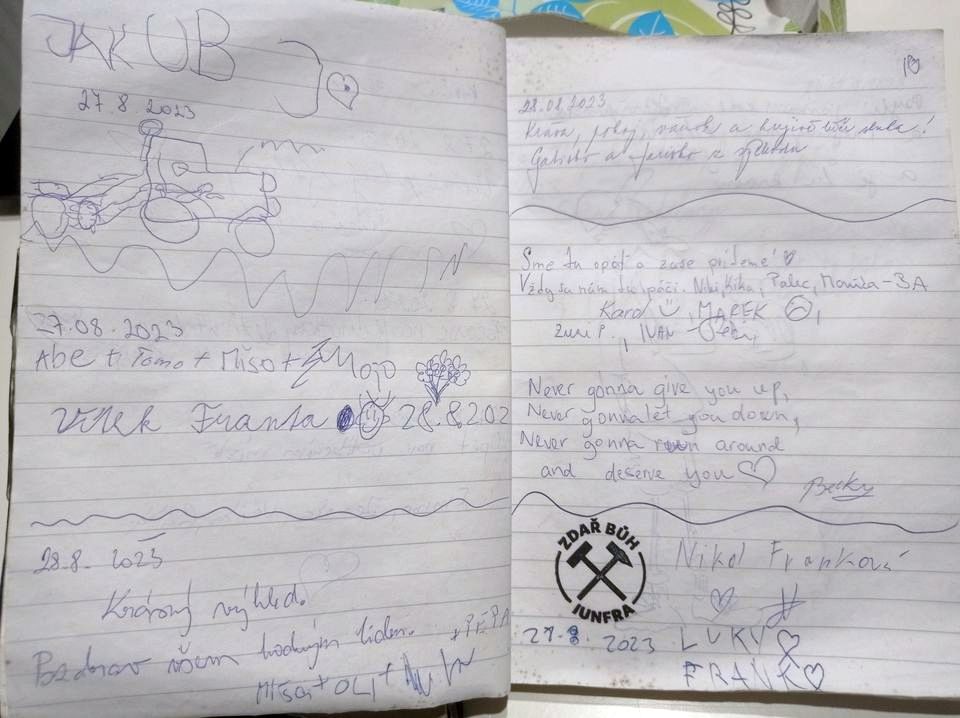 JAKUB
27.8.2023
27.08.2023
Abe + Tomo + Mišo + Mojo
Vítek Franta 28.8.202
28.8. 2023
Krásný výhled.
Pozdrav všem hodným lidem. + PÉPA
Míša + OLI +
28.08.2023
Krása, pokoj, vánok a
Sme tu opäť a zase prídeme!
Vždy sa nám tu páči. Niki, Kika, Palec, Monika - BA
Karol, MAREK,
Zuzi P., IVAN
Never gonna give you up,
Never gonna let you down,
Never gonna run around
and deserve you
Becky
ZDAŘ BŮH
IUNFRA
Nikol Franková
27.8. 2023 LUKY
FRANK